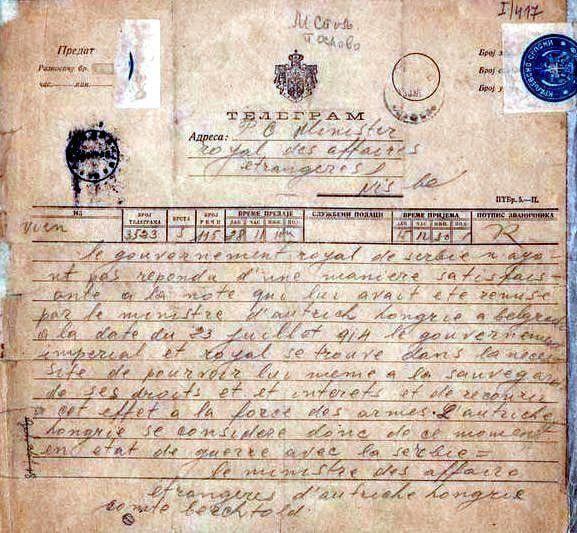 I/417
Предат
Број
Разносачу бр.
Број
час мин.
Број
КРАЉЕВСКО СРПСКИ
ТЕЛЕГРАМ
Адреса: Minister
royal des affaires
etrangeres
Nis
ПТБр. 5.—II.
ИЗ БРОЈ ТЕЛЕГРАМА ВРСТА БРОЈ РЕЧИ ВРЕМЕ ПРЕДАЈЕ СЛУЖБЕНИ ПОДАЦИ ВРЕМЕ ПРИЈЕМА ПОТПИС ЗВАНИЧНИКА
3523 28 11 12 R
le gouvernement royal de serbie n ayo
nt pas reponda d'une maniere satisfais-
ante a la note qui lui avait ete remise
par le ministre d'autrich hongrie a belgrad
a la date du 23 juillet 914 le gouvernemen
imperial et royal se trouve dans la neces
site de pourvoir lui meme a la sauvegar
de ses droits et et interets et de recourir
a cet effet a la force des armes. L autriche
hongrie se considere donc de ce moment
en etat de guerre avec la serbie =
le ministre des affaire
etrangeres d'autriche hongrie
comte berchtold.